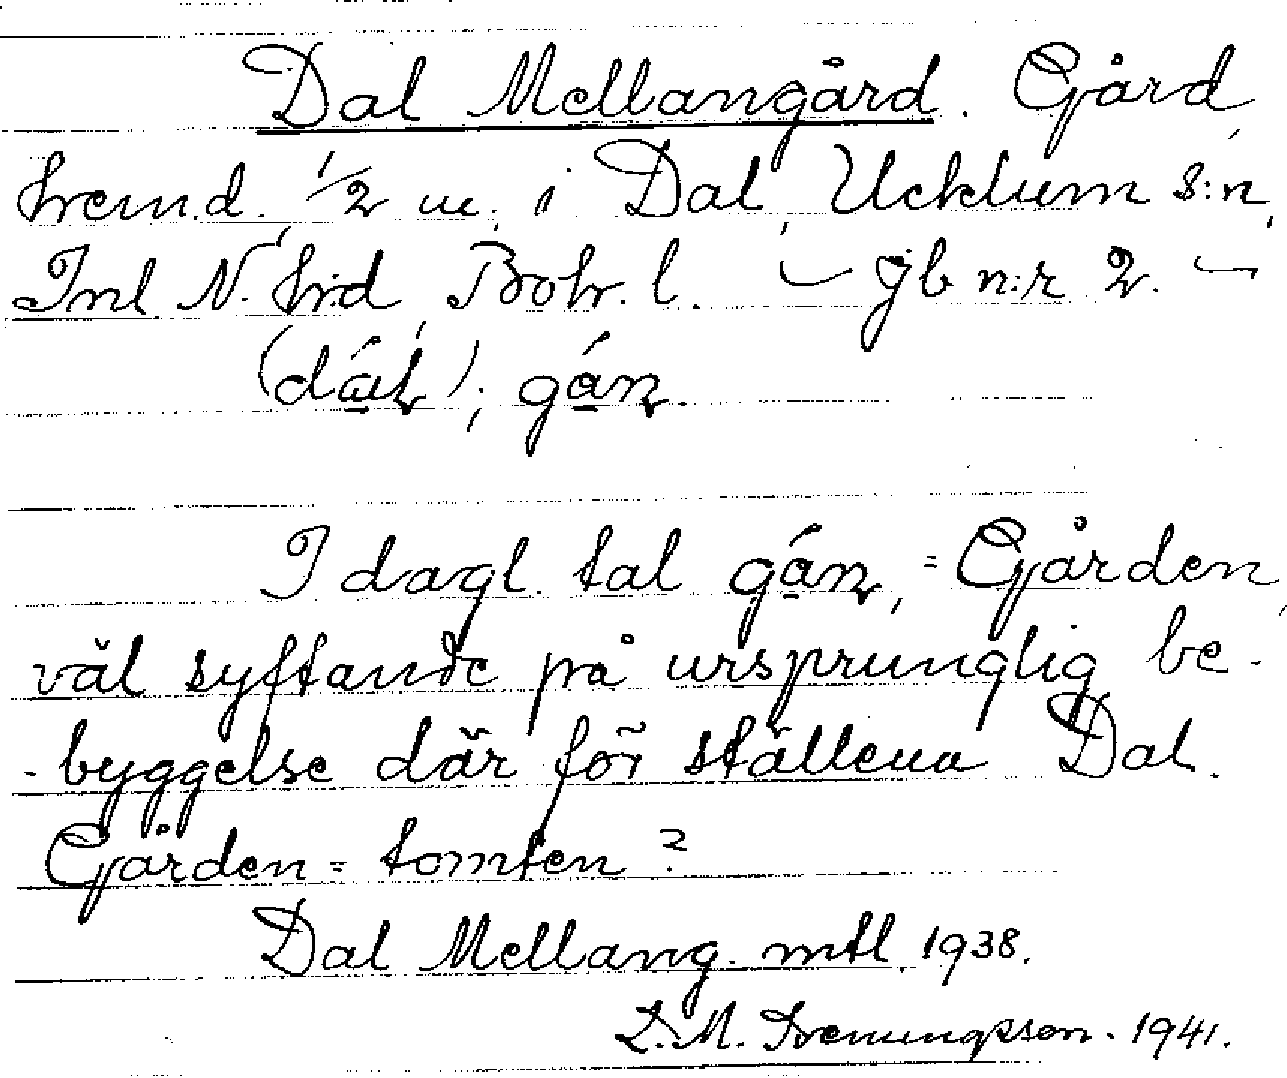 Dal Mellangård. Gård,
hemd. 1/2 m. i Dal, Ucklum s:n,
Inl. N. hrd, Boh. l. — jb n:r 2. —
(dál); gán.
I dagl. tal gán, = Gården,
väl syftande på ursprunglig be-
-byggelse där för ställena Dal.
Gården = tomten?
Dal Mellang. mtl. 1938.
L. M. Svenungsson. 1941.